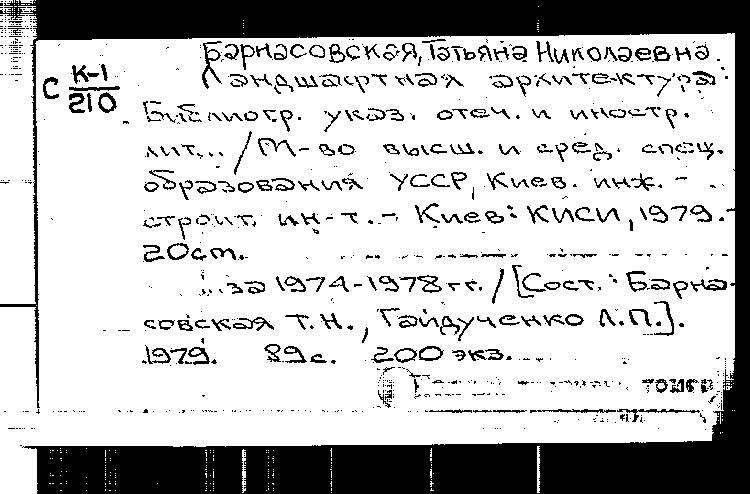 Барнасовская, Татьяна Николаевна.
С К-1/210
Ландшафтная архитектура:
Библиогр. указ. отеч. и иностр.
лит... / М-во высш. и сред. спец.
образования УССР, Киев. инж. -
строит. ин-т. - Киев: КИСИ, 1979. -
20 см.
...за 1974-1978 гг. / [Сост.: Барна-
совская Т.Н., Гайдученко Л.П.].
1979. 89 с. 200 экз.